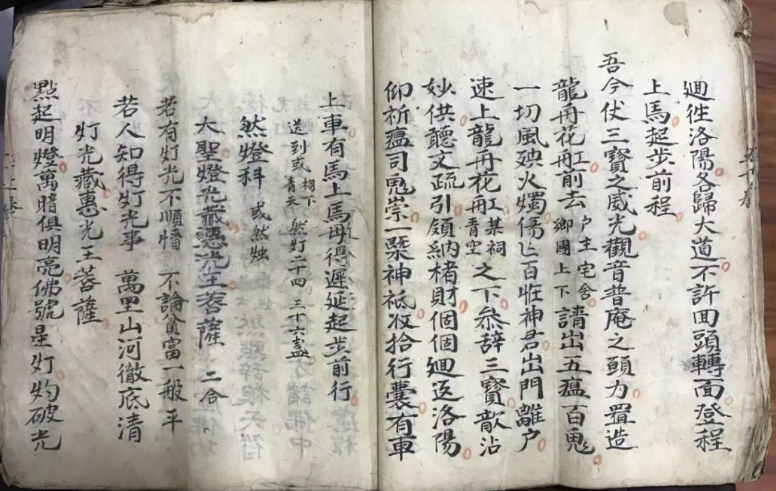 迴徃洛陽各歸大道不許回頭轉面登程
上馬起步前程
吾今仗三寶之威光觀音普庵之願力置造
龍舟花舡前去户主宅舍鄉團上下請出五瘟百鬼
一切風殃火燭傷亡百姓神君出門離户
速上龍舟花舡某祠青空之下叅辞三寶歆沾
妙供聽文疏引領納楮財個個迴返洛陽
仰祈瘟司鬼祟一槩神祇收拾行囊有車
上車有馬上馬毋得遲延起步前行
送到或栩下青天 然灯二十四 三十六盞
然燈科 或然烛
大聖燈光藏惠光王菩薩 二合
若有灯光不順情 不論貧富一般平
若人知得灯光事 萬里山河徹底清
灯光藏惠光王菩薩
點起明燈萬暗俱明亮佛號是灯灼破光